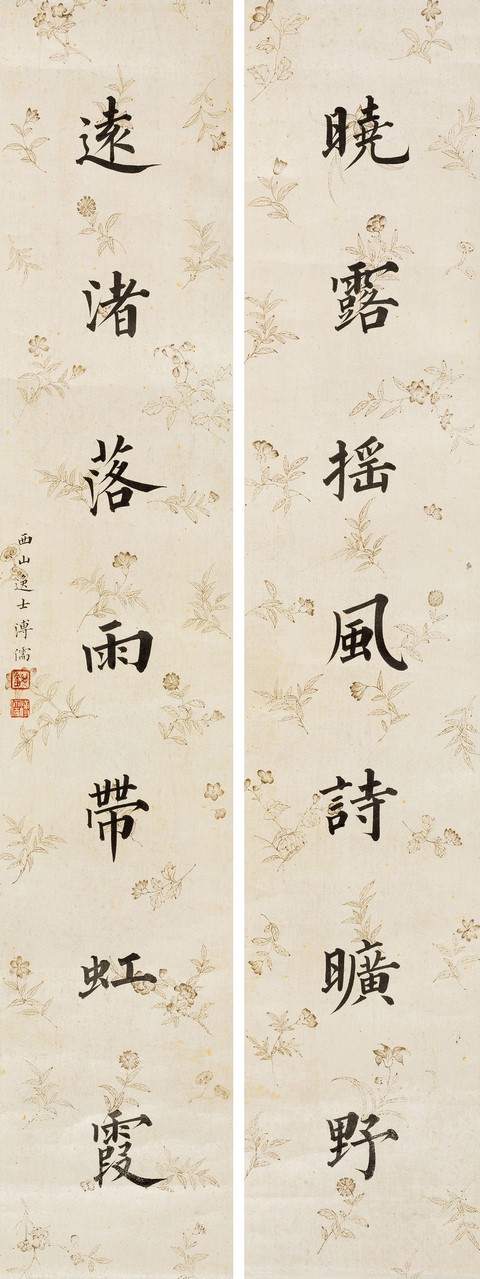 曉露摇風詩曠野
遠渚落雨帶虹霞
西山逸士溥濡